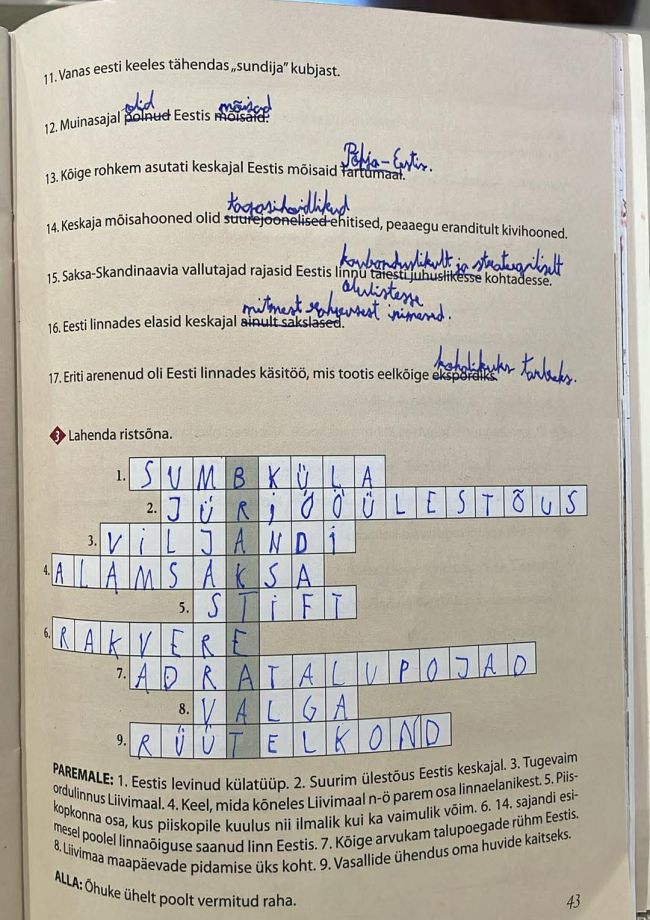 11. Vanas eesti keeles tähendas „sundija” kubjast.
olid mõisad
12. Muinasajal polnud Eestis mõisaid.
Põhja-Eestis.
13. Kõige rohkem asutati keskajal Eestis mõisaid Tartumaal.
tagasihoidlikud
14. Keskaja mõisahooned olid suurejoonelised ehitised, peaaegu eranditult kivihooned.
kaubanduslikult ja strateegiliselt
15. Saksa-Skandinaavia vallutajad rajasid Eestis linnu täiesti juhuslikesse kohtadesse.
olulistesse
mitmest rahvusest inimesed.
16. Eesti linnades elasid keskajal ainult sakslased.
kohalikuks tarbeks.
17. Eriti arenenud oli Eesti linnades käsitöö, mis tootis eelkõige ekspordiks.
3 Lahenda ristsõna.
1. SUMBKÜLA
2. JÜRIÖÖÜLESTÕUS
3. VILJANDI
4. ALAMSAKSA
5. STIFT
6. RAKVERE
7. ADRATALUPOJAD
8. VALGA
9. RÜÜTELKOND
PAREMALE: 1. Eestis levinud külatüüp. 2. Suurim ülestõus Eestis keskajal. 3. Tugevaim
ordulinnus Liivimaal. 4. Keel, mida kõneles Liivimaal n-ö parem osa linnaelanikest. 5. Piis-
kopkonna osa, kus piiskopile kuulus nii ilmalik kui ka vaimulik võim. 6. 14. sajandi esi-
mesel poolel linnaõiguse saanud linn Eestis. 7. Kõige arvukam talupoegade rühm Eestis.
8. Liivimaa maapäevade pidamise üks koht. 9. Vasallide ühendus oma huvide kaitseks.
ALLA: Õhuke ühelt poolt vermitud raha.
43